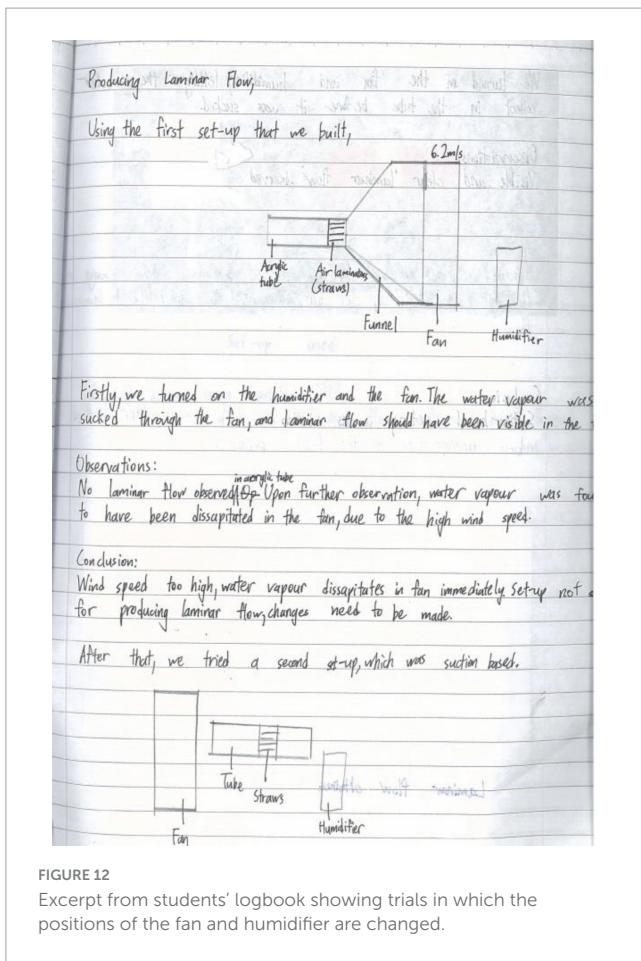 Producing Laminar Flow,
Using the first set-up that we built,
6.2m/s
Acrylic tube
Air laminators (straws)
Funnel
Fan
Humidifier
Firstly, we turned on the humidifier and the fan. The water vapour was
sucked through the fan, and laminar flow should have been visible in the
Observations:
in acrylic tube
No laminar flow observed. Upon further observation, water vapour was
to have been dissapitated in the fan, due to the high wind speed.
Conclusion:
Wind speed too high, water vapour dissapitates in fan immediately set-up not
for producing laminar flow, changes need to be made.
After that, we tried a second set-up, which was suction based.
Tube
Straws
Fan
Humidifier
FIGURE 12
Excerpt from students' logbook showing trials in which the
positions of the fan and humidifier are changed.